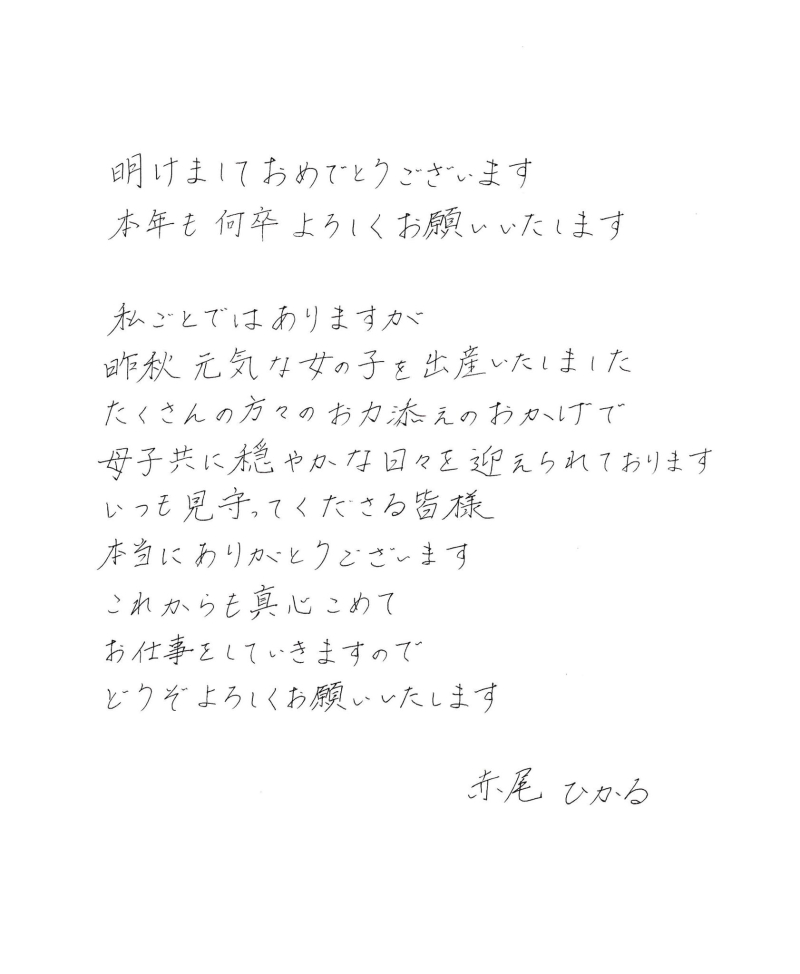 明けましておめでとうございます
本年も何卒よろしくお願いいたします
私ごとではありますが
昨秋 元気な女の子を出産いたしました
たくさんの方々のお力添えのおかげで
母子共に穏やかな日々を迎えられております
いつも見守ってくださる皆様
本当にありがとうございます
これからも真心こめて
お仕事をしていきますので
どうぞよろしくお願いいたします
赤尾 ひかる